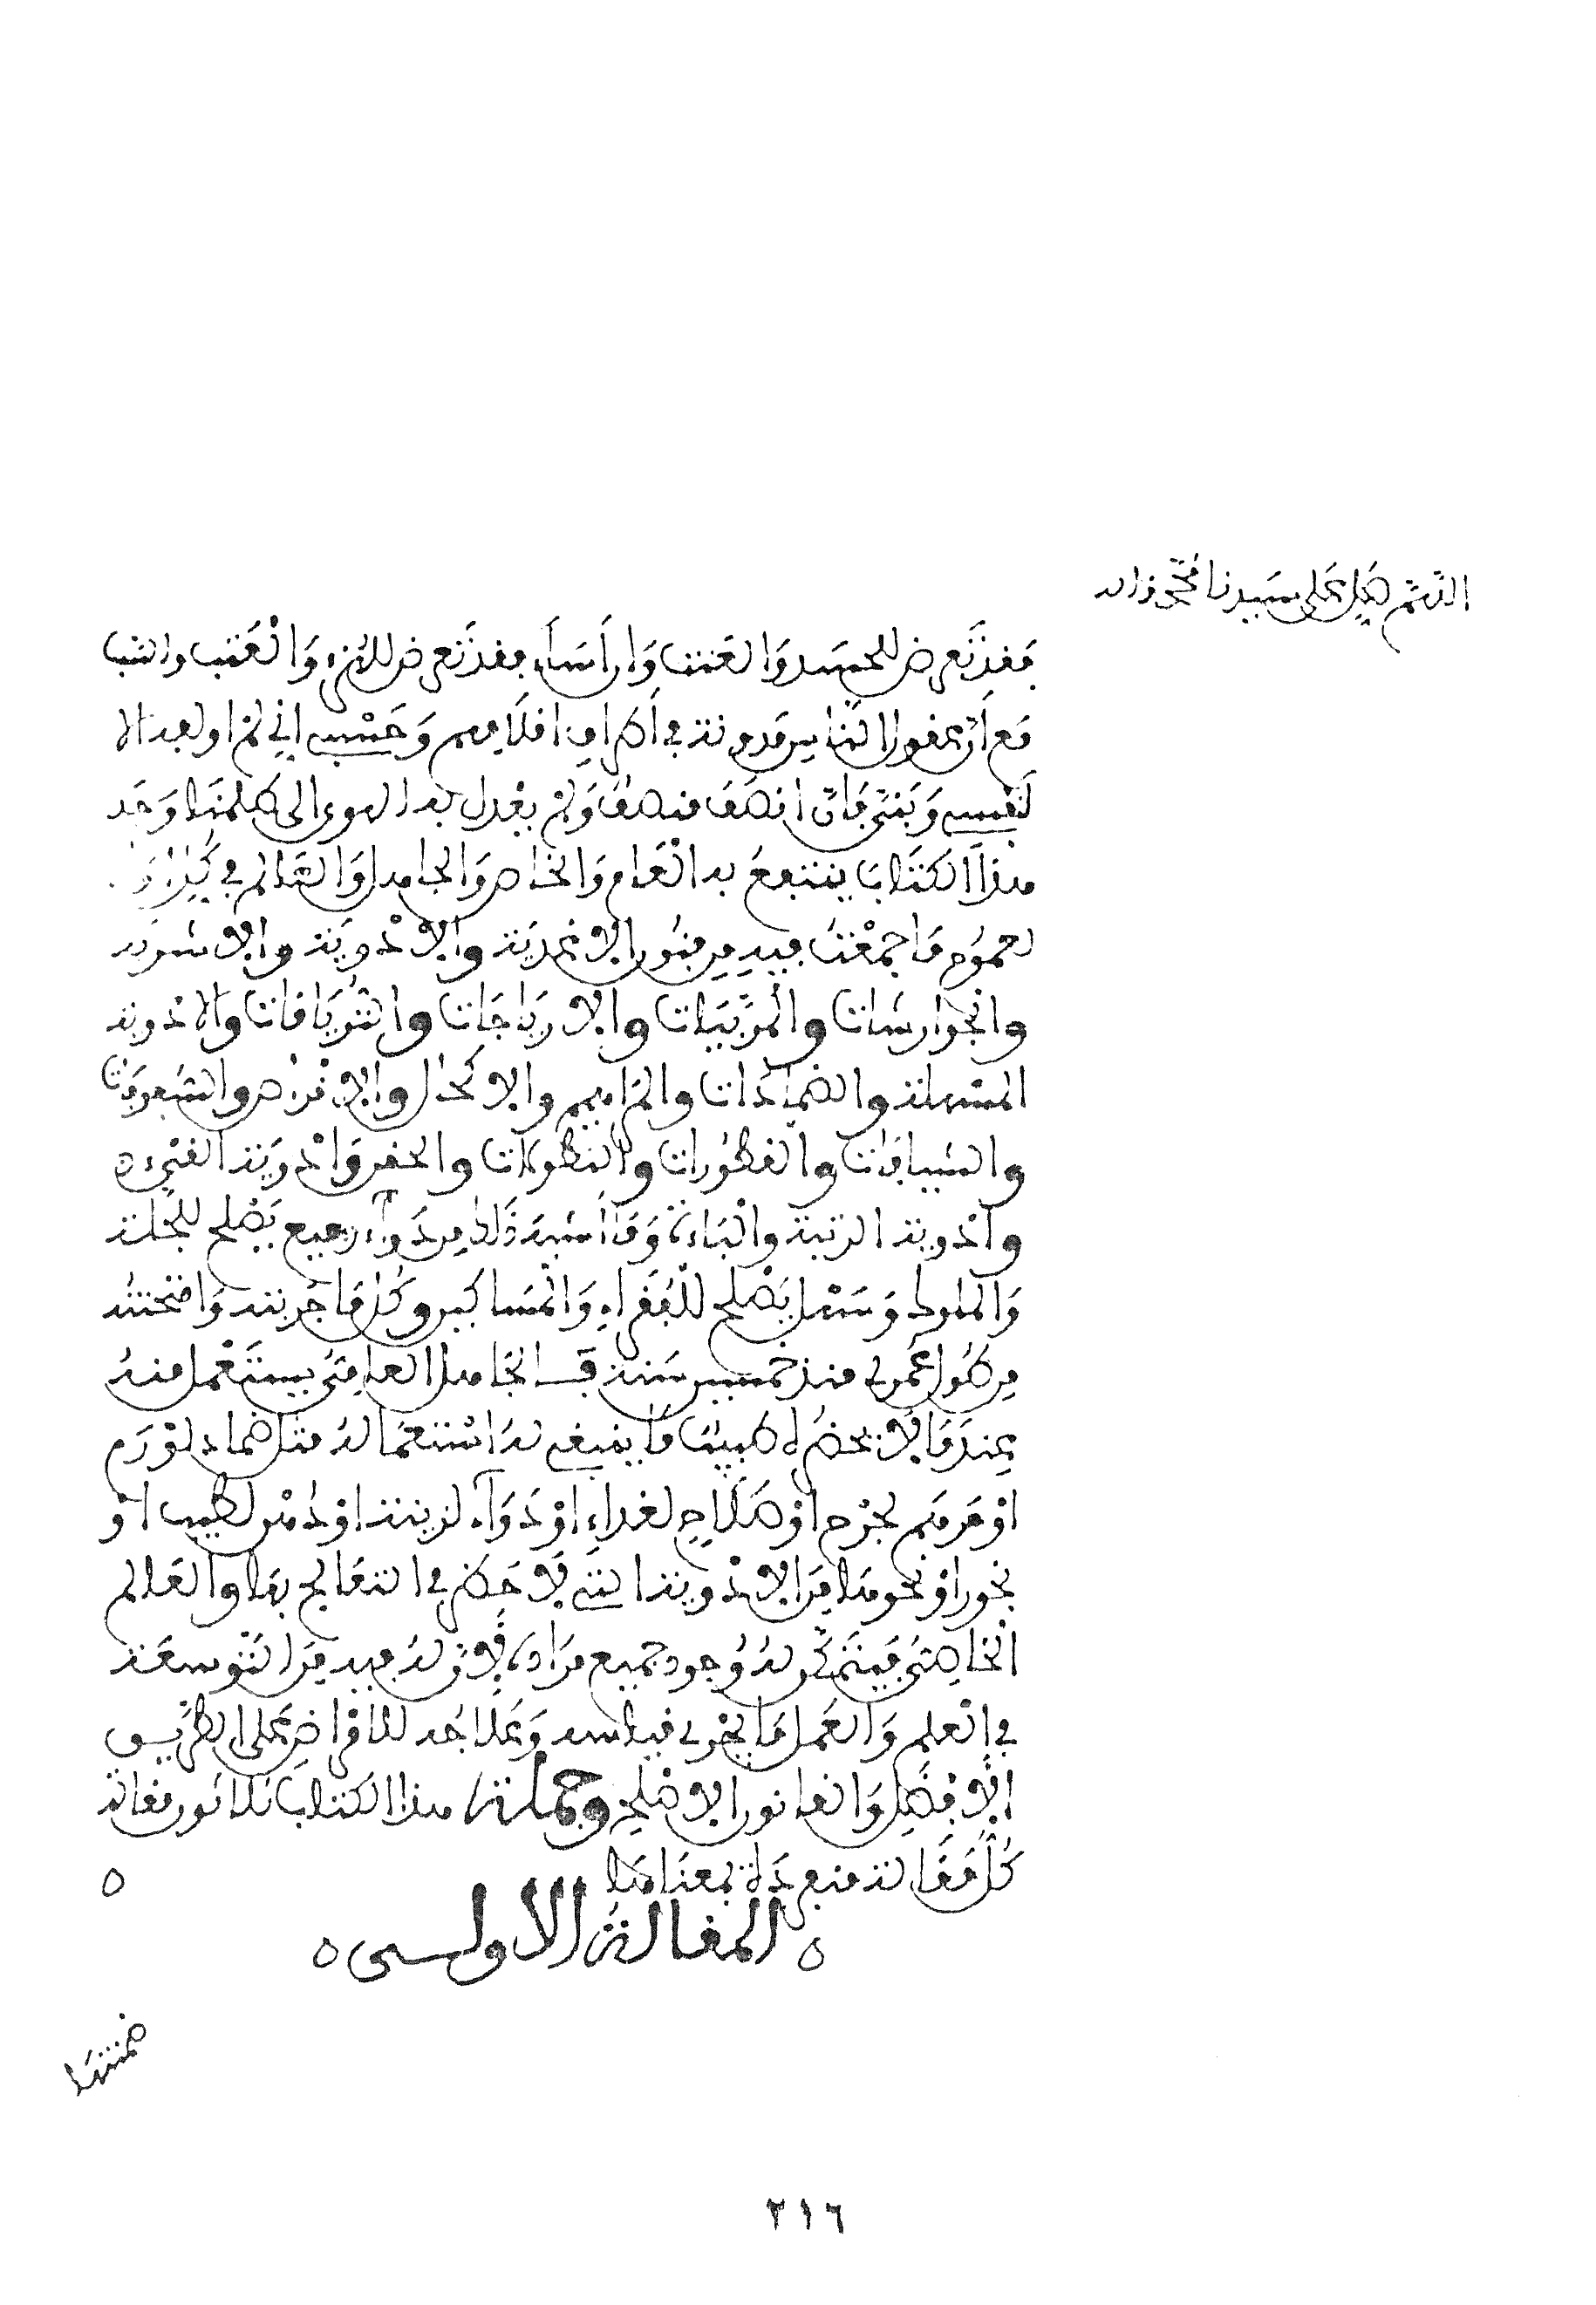 اللهم صل على سيدنا محمد واله
فقد تعرض للحسد والعتب وان أساء فقد تعرض للهزء والعتب والسب
مع أن عقول الناس مدونة في أطراف اقلامهم وحسبي اني لم اولعه الا
لنفسي وبني فان انصف منصف ولم يعدل به الهوى الى ظلمنا وجد
هذا الكتاب ينتفع به العام والخاص والجاهل والعالم في
لعموم ما جمعت فيه من فنون الاغذية والادوية والاشربه
والجوارشات والمربيات والايارجات والترياقات والادوية
المسهلة والضمادات والمراهم والاكحال والاقراص والسفوفات
والشيافات والقطورات والنطولات والحقن وادوية القيء
وادوية الزينة والباءة وما اشبه ذلك من دواء رفيع يصلح للجلة
والملوك وسهل يصلح للفقراء والمساكين وكل ما جربته وامتحنته
من طول عمري منذ خمسين سنة فالجاهل العامي يستعمل منه
عند ما لا يحضره طبيب ما ينبغي له استعماله مثل ضماد لورم
او مرهم لجرح او صلاح لغذاء او دواء لزينة او دهن لطيب او
بخور او نحوها من الادوية التي لا خطر في التعالج بها والعالم
الخاصي فيتمكن له وجود جميع مراده لان له فيه من التوسعة
في العلم والعمل ما يجري قياسه وعلاجه للامراض على الطريق
الافضل والقانون الاصلح وجملة هذا الكتاب ثلاثون مقالة
كل مقالة منفردة بمعناها ٥
٥ المقالة الاولى ٥
ضمنتها
٢١٦